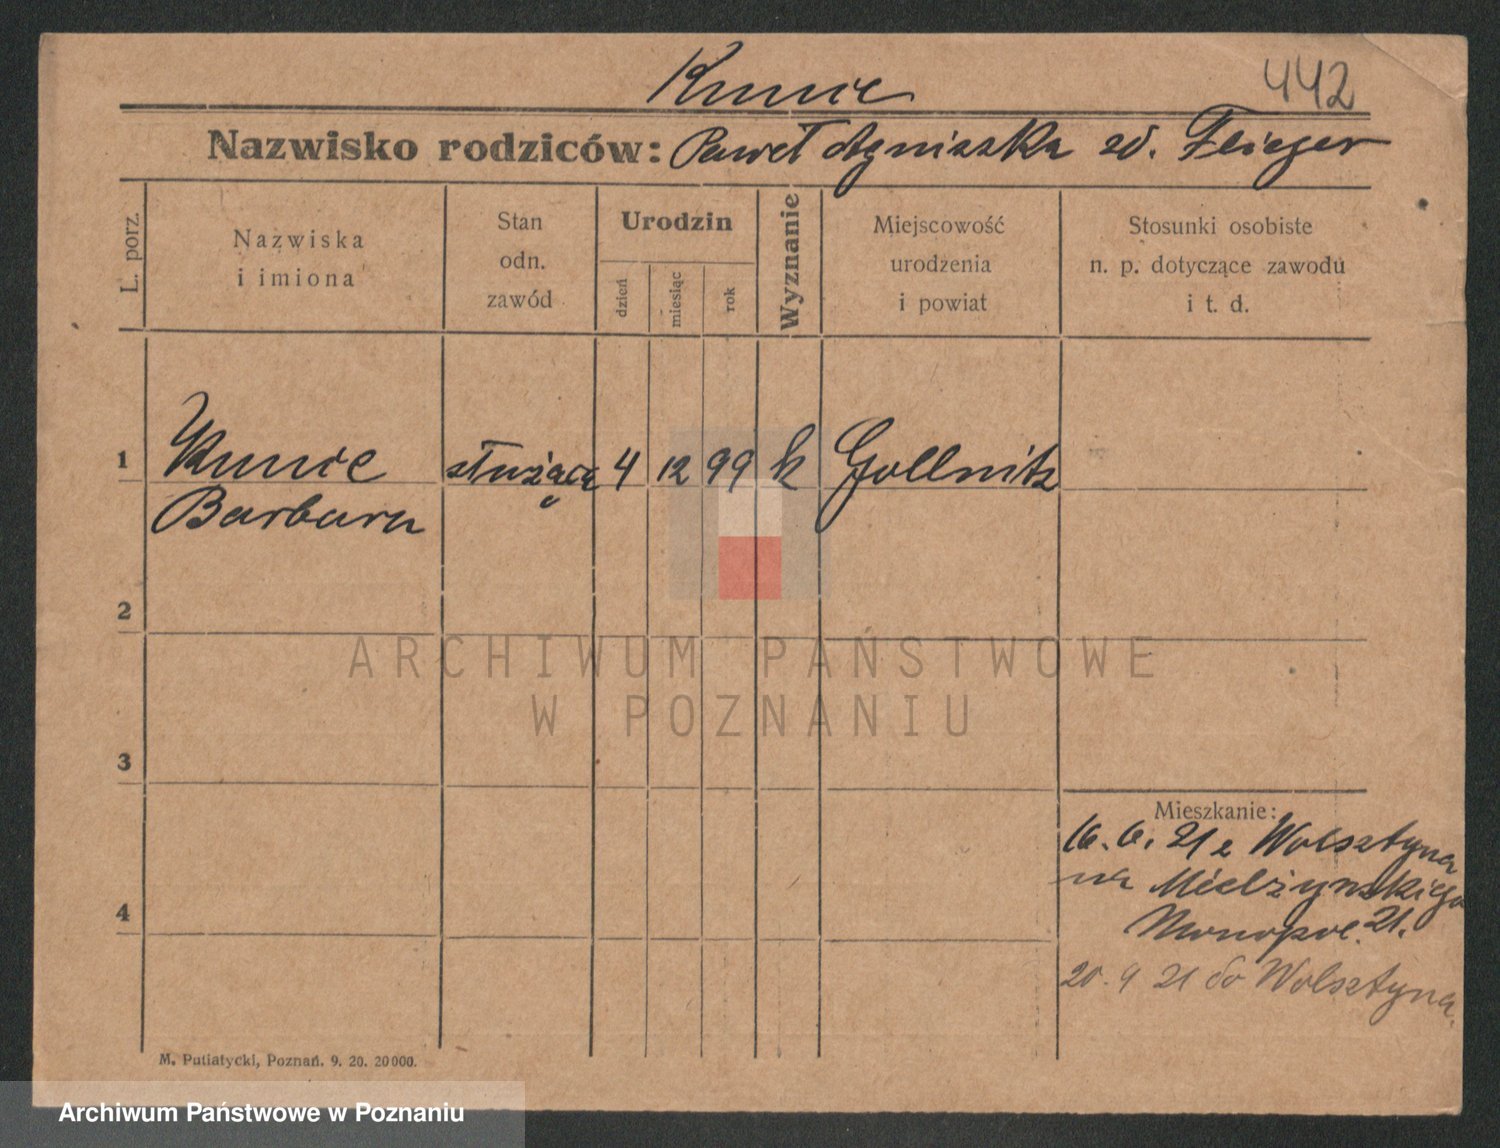 442
Kunie
Nazwisko rodziców: Paweł Agniszka zd. Flieger
L. porz.
Nazwiska
i imiona
Stan
odn.
zawód
Urodzin
dzień
miesiąc
rok
Wyznanie
Miejscowość
urodzenia
i powiat
Stosunki osobiste
n. p. dotyczące zawodu
i t. d.
1 Kunie służąca 4 12 99 k Gollnitz
Barbara
2
3
4
Mieszkanie:
16. 6. 21 z Wolsztyna
na Mielżynskiego
21.
20. 9 21 do Wolsztyna.
M. Putiatycki, Poznań. 9. 20. 20000.
ARCHIWUM PAŃSTWOWE
W POZNANIU
Archiwum Państwowe w Poznaniu